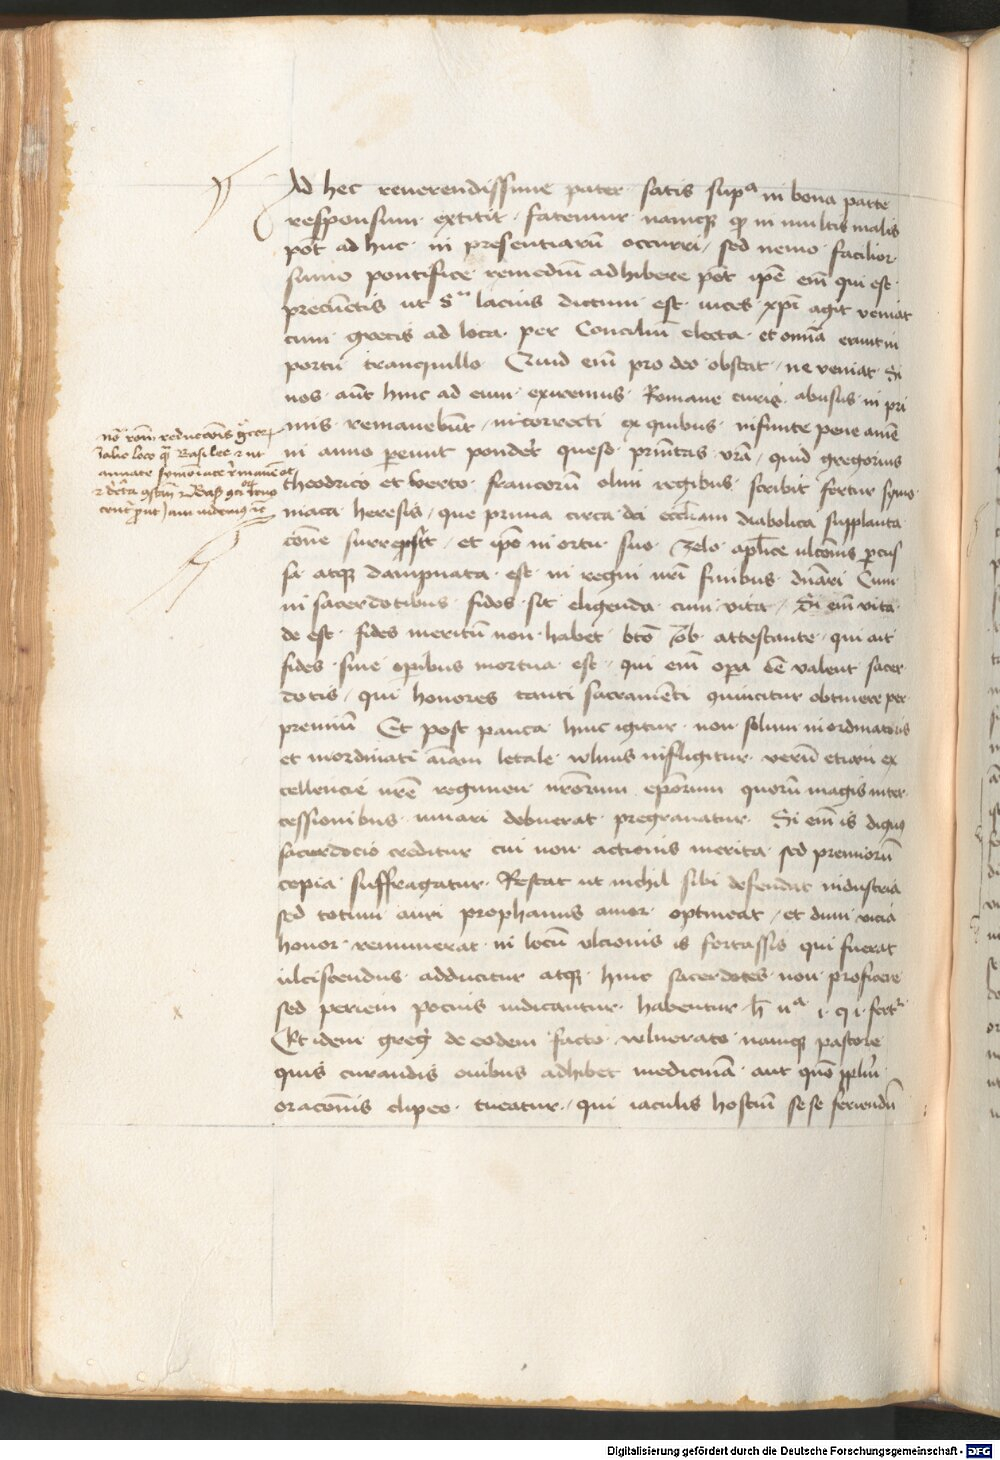 Ad hec reuerendissime pater satis supᵃ in bona parte
responsum extitit fatemur namqꝫ ꝙ in multis malis
pōt ad huc in presentiarū occurri / sed nemo facilior
sumo pontifice remediū adhibere pōt ipē em̄ qui est
ut lacius dictum est uices xp̄i agit veniat
cum grecis ad loca per Conciliū electa et omīa erunt in
portu tranquillo Quid em̄ pro deo obstat ne veniat Si
nos aūt hinc ad eum exuremus Romane curie abusus in pri
mis remanebūt incorrecti ex quibus infinite pene anīe
in anno pereunt queso vrā / quid gregorius
theodrico et francorū olim regibus scribit fertur symo
niaca heresis / que prima circa dei eccl̄iam diabolica supplanta
cōne / et ip̄o in ortu suo zelo apl̄ice ulcōnis percus
sa atqꝫ dampnata est in regni vr̄i finibus dn̄ari Cum
in sacerdotibus fides sit eligenda cum vita / Si em̄ vita
de est fides meritū non habet btō attestante qui ait
fides sine operibus mortua est / qui em̄ opera cē valent sacer
dotis / qui honores tanti sacramēti obtinere per
premiū Et post pauca hinc igitur non solum in ordinatoris
et in ordinati aīam letale wlnus infligitur verū etiam ex
cellencie vr̄e regimen vr̄orum ep̄orum quorū magis inter
cessionibus iuuari debuerat pregrauatur Si em̄ is dignus
sacerdocio creditur cui non actionis merita sed premiorū
copia suffragatur Restat ut nichil sibi defendat industria
sed totum auri prophanus amor optineat / et dum vicia
honor remunerat in locū vlcionis is fortassis qui fuerat
ulciscendus adducitur atqꝫ hinc sacerdotes non proficere
sed periem pocius indicantur habentur
Et idem greg̃ de eodem facto wlnerato namqꝫ pastore
quis curandis ouibus adhibet medicinā aut quō ppl̄m
oracōnis clipeo tueatur / qui iaculis hostiū sese feriendū
Basilee
annate
Digitalisierung gefördert durch die Deutsche Forschungsgemeinschaft - DFG